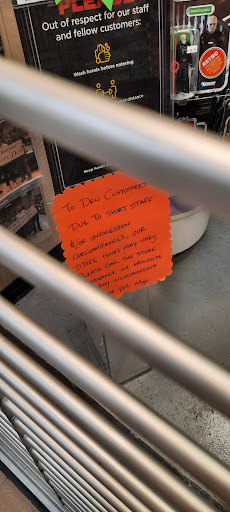 PLEASE
Out of respect for our staff
and fellow customers:
Wash hands before entering
distance
Keep
TO DEN CUSTOMERS
DUE TO SHORT STAFF
&/OR UNFORESEEN
CIRCUMSTANCES, OUR
STORE HOURS MAY VARY
PLEASE CALL THE STORE
WE APOLOGIZE
ANY INCONVENIENCE
YOU